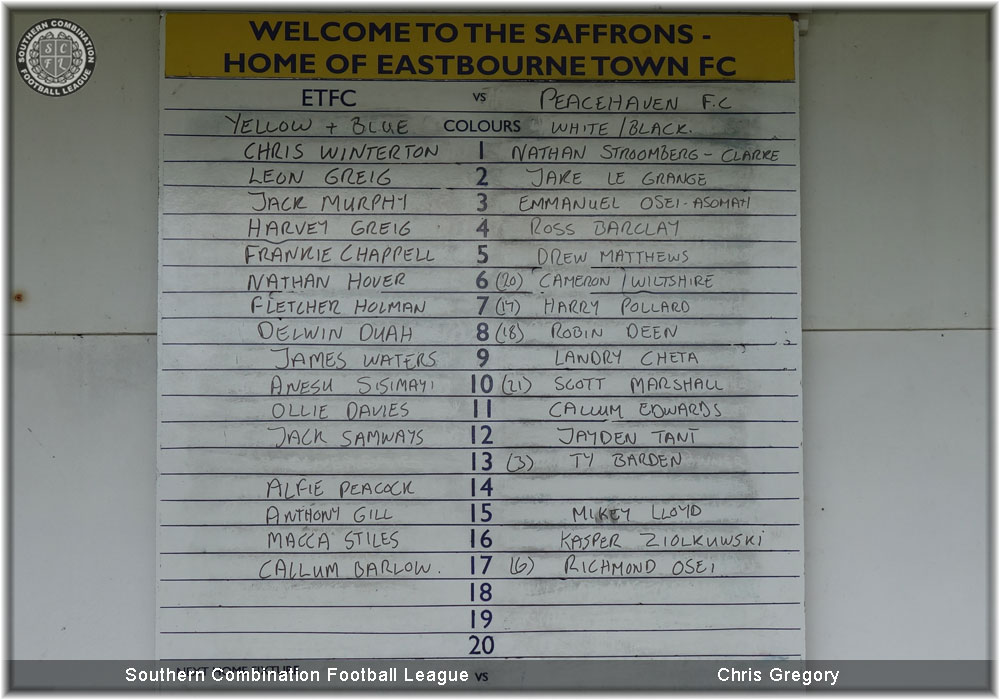 SOUTHERN COMBINATION FOOTBALL LEAGUE
SCFL
WELCOME TO THE SAFFRONS -
HOME OF EASTBOURNE TOWN FC
ETFC vs PEACEHAVEN F.C
YELLOW + BLUE COLOURS WHITE / BLACK.
CHRIS WINTERTON 1 NATHAN STROOMBERG - CLARKE
LEON GREIG 2 JAKE LE GRANGE
JACK MURPHY 3 EMMANUEL OSEI-ASOMAH
HARVEY GREIG 4 ROSS BARCLAY
FRANKIE CHAPPELL 5 DREW MATTHEWS
NATHAN HOVER 6 (20) CAMERON WILTSHIRE
FLETCHER HOLMAN 7 (17) HARRY POLLARD
DELWIN DUAH 8 (18) ROBIN DEEN
JAMES WATERS 9 LANDRY CHETA
ANESU SISIMAYI 10 (21) SCOTT MARSHALL
OLLIE DAVIES 11 CALLUM EDWARDS
JACK SAMWAYS 12 JAYDEN TANT
13 (3) TY BARDEN
ALFIE PEACOCK 14
ANTHONY GILL 15 MIKEY LLOYD
MACCA STILES 16 KASPER ZIOLKUWSKI
CALLUM BARLOW. 17 (6) RICHMOND OSEI
18
19
20
NEXT HOME FIXTURE vs
Southern Combination Football League Chris Gregory